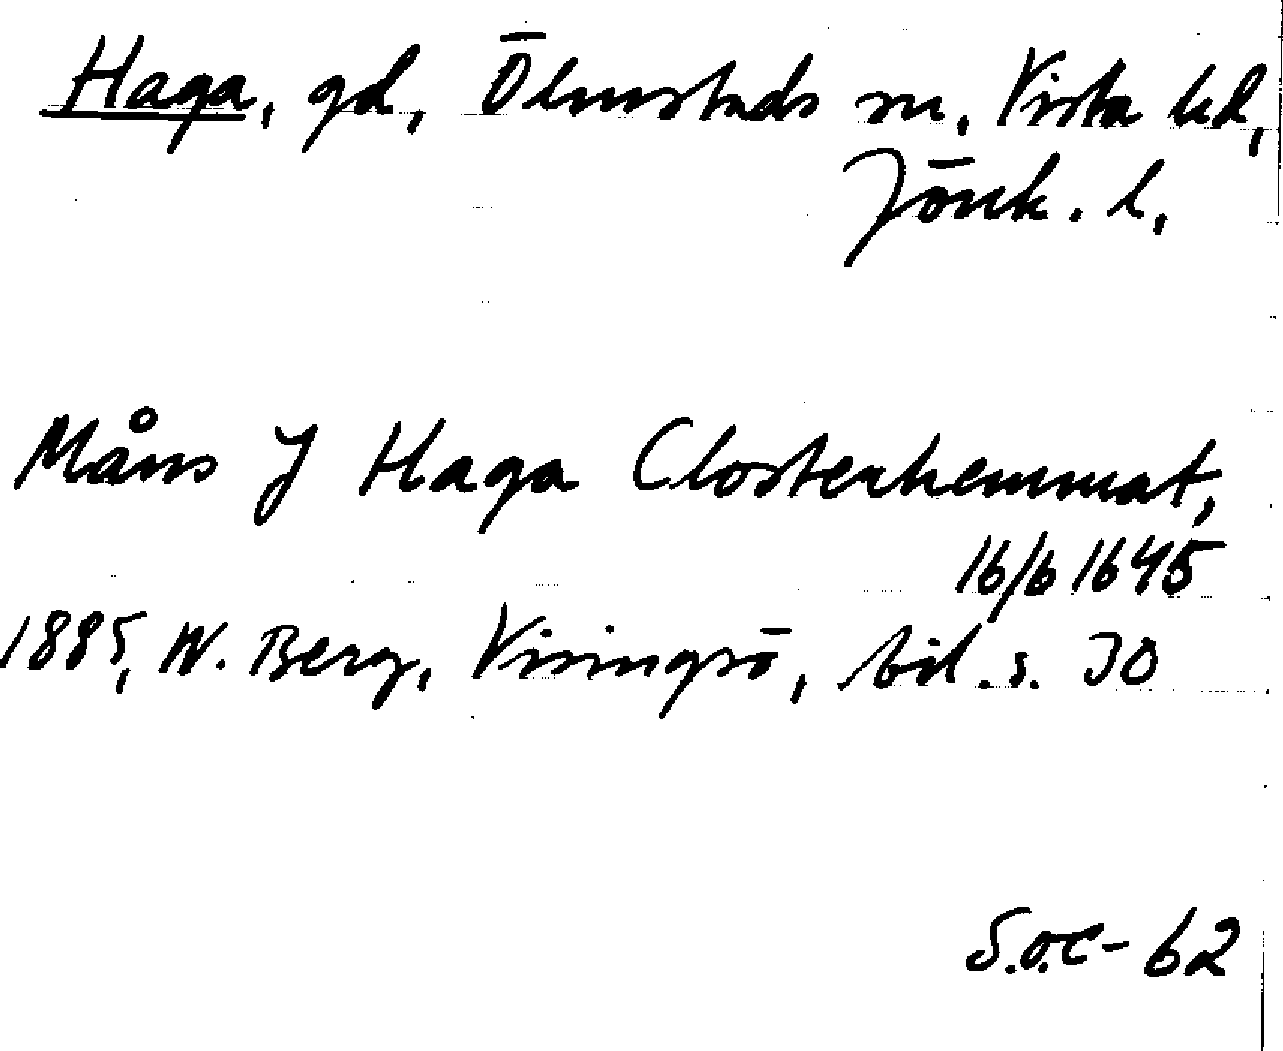 Haga, gd, Ölmstads sn, Vista hd,
Jönk. l.
Måns J Haga Closterhemmat,
16/6 1645
1885, W. Berg, Visingsö, bil. s. 30
S.O.C-62